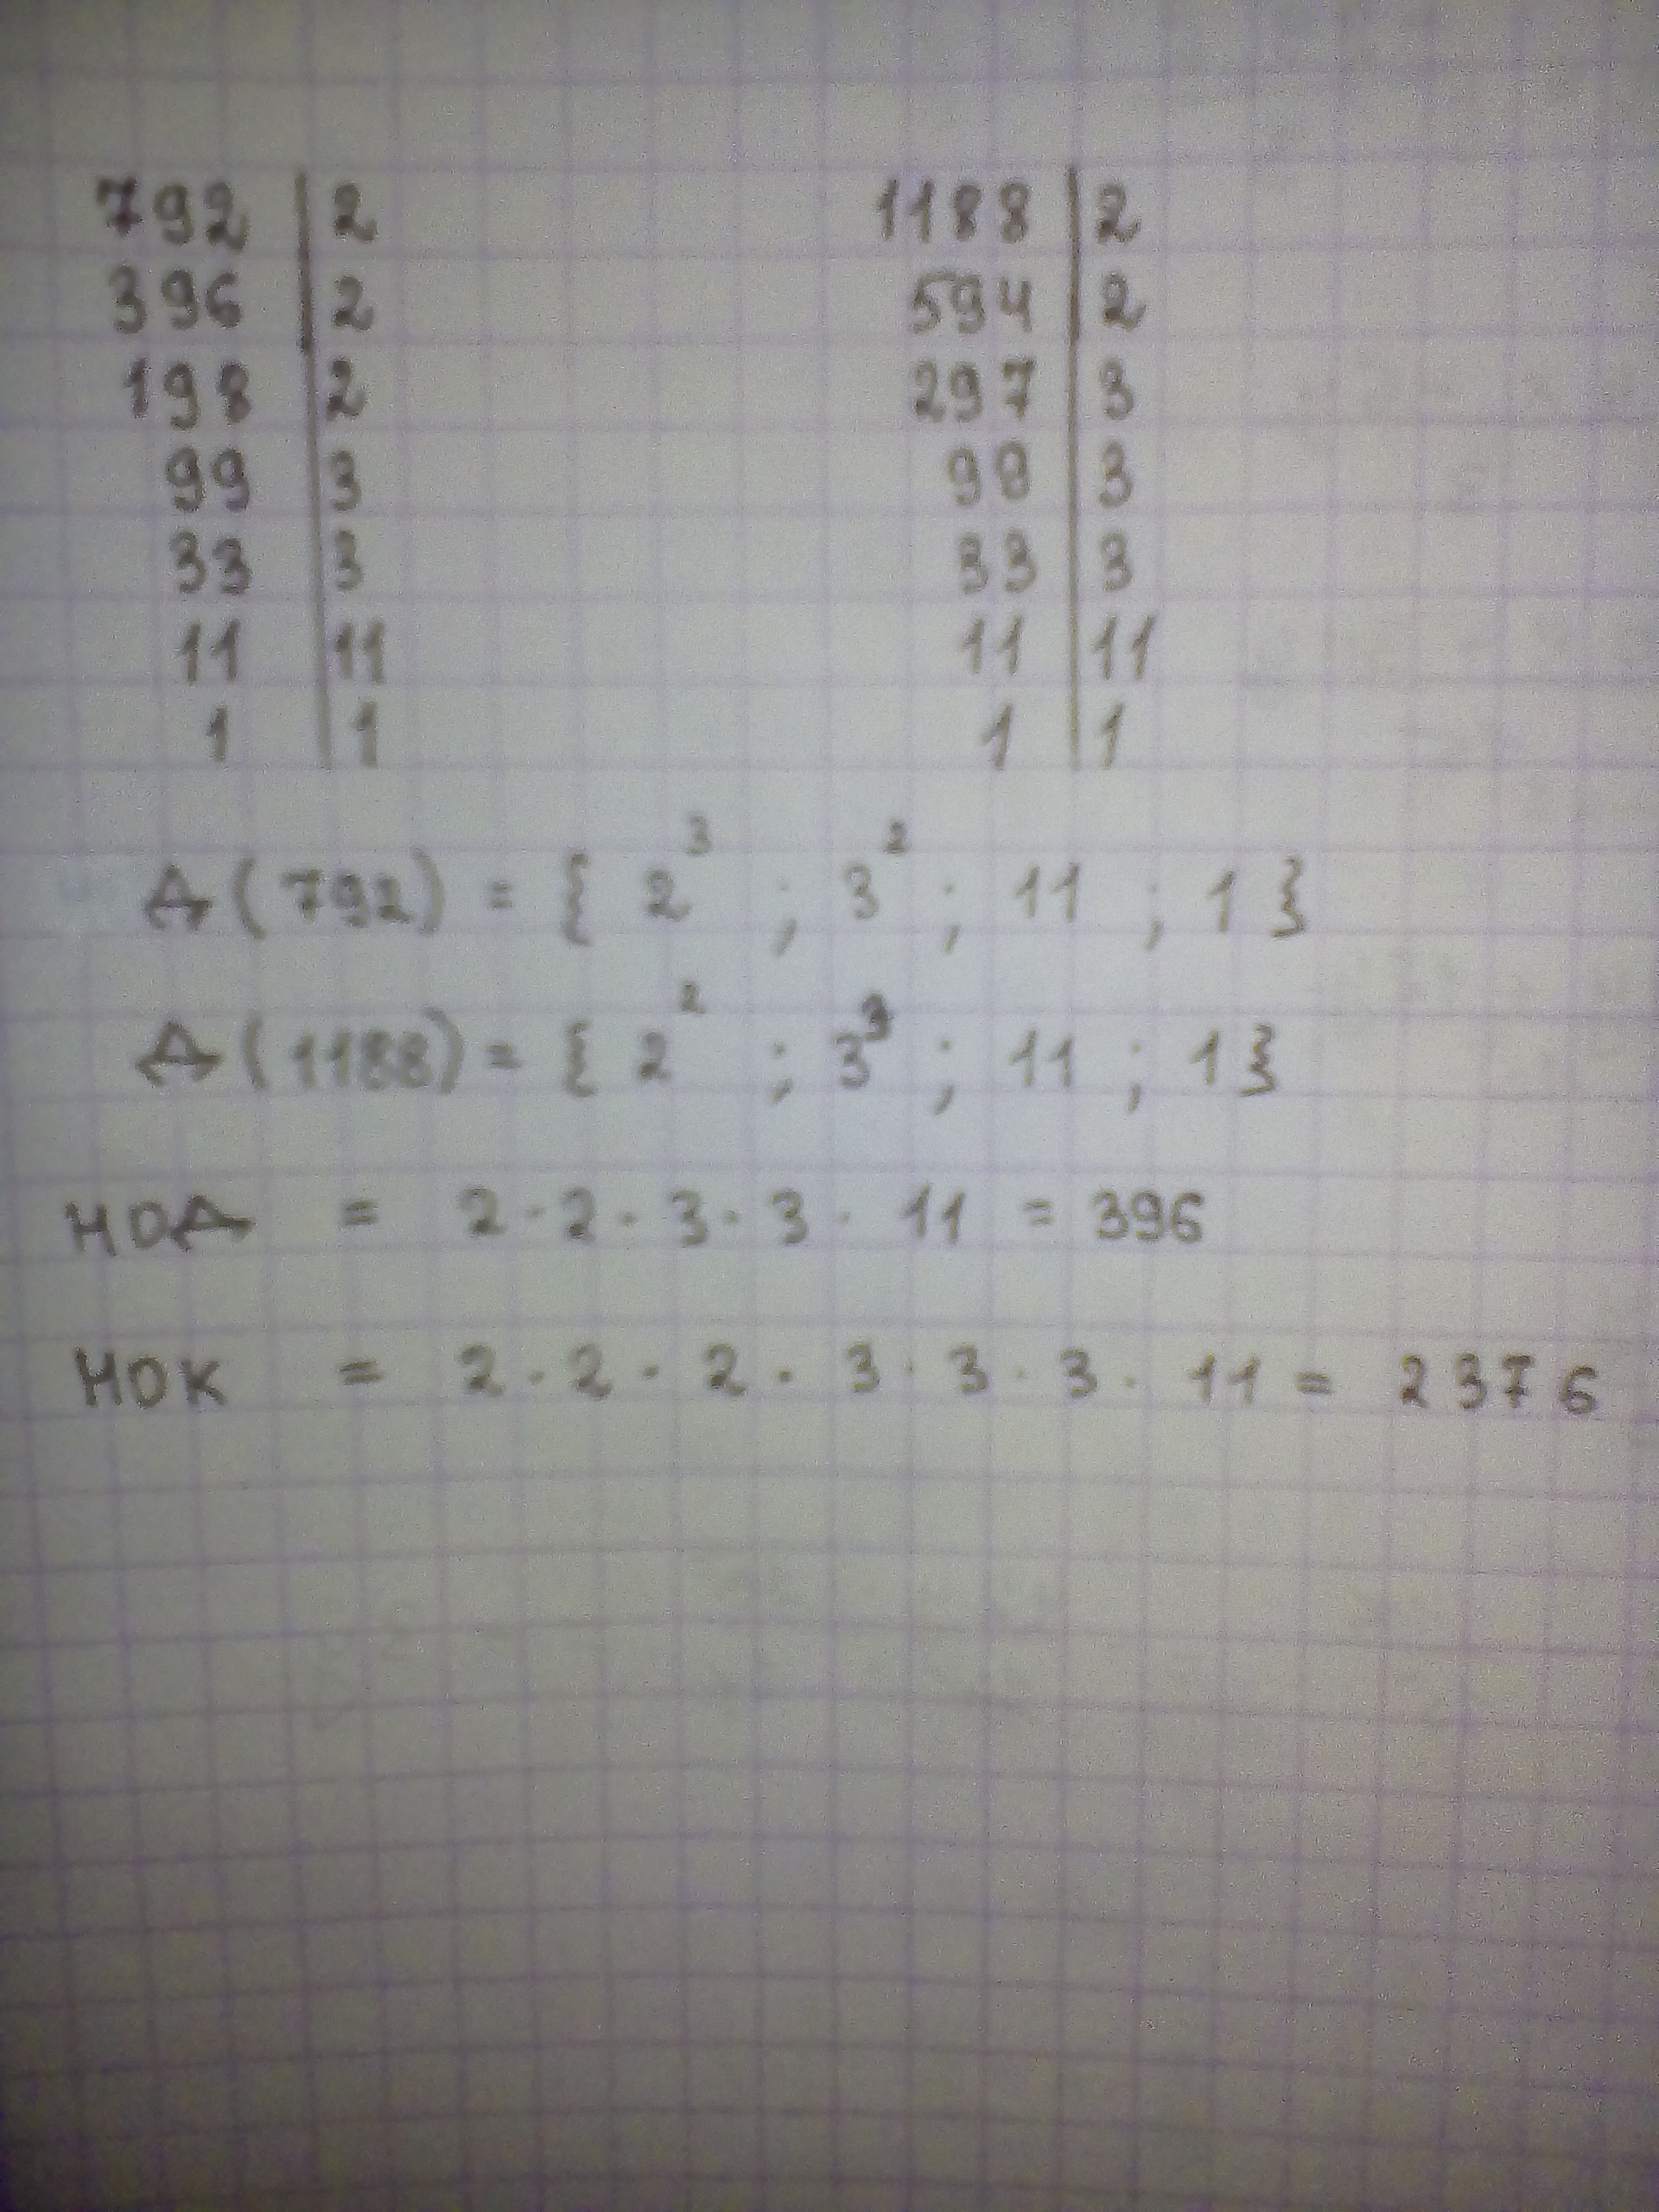 792 | 2
396 | 2
198 | 2
99 | 3
33 | 3
11 | 11
1 | 1
1188 | 2
594 | 2
297 | 3
99 | 3
33 | 3
11 | 11
1 | 1
Д(792) = { 2³ ; 3² ; 11 ; 1 }
Д(1188) = { 2² ; 3³ ; 11 ; 1 }
НОД = 2 · 2 · 3 · 3 · 11 = 396
НОК = 2 · 2 · 2 · 3 · 3 · 3 · 11 = 2376